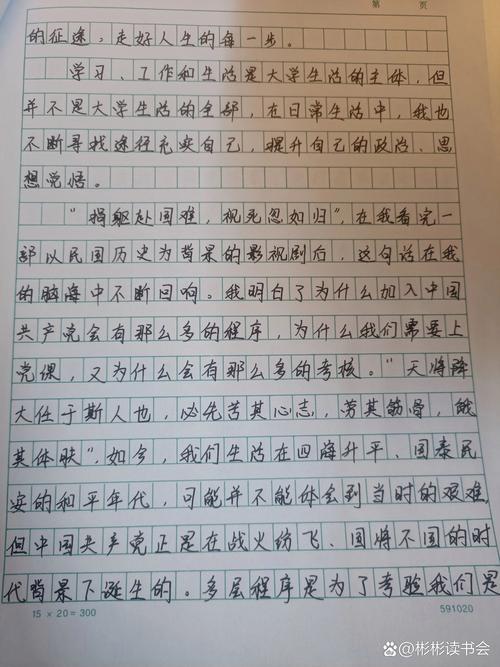 第 页
的征途，走好人生的每一步。
学习、工作和生活是大学生活的主体，但
并不是大学生活的全部，在日常生活中，我也
不断寻找途径充实自己，提升自己的政治、思
想觉悟。
“捐躯赴国难，视死忽如归”，在我看完一
部以民国历史为背景的影视剧后，这句话在我
的脑海中不断回响。我明白了为什么加入中国
共产党会有那么多的程序，为什么我们需要上
党课，又为什么会有那么多的考核。“天将降
大任于斯人也，必先苦其心志，劳其筋骨，饿
其体肤”，如今，我们生活在四海升平、国泰民
安的和平年代，可能并不能体会到当时的艰难，
但中国共产党正是在战火纷飞、国将不国的时
代背景下诞生的。多层程序是为了考验我们是
15 × 20 = 300 591020
@彬彬读书会